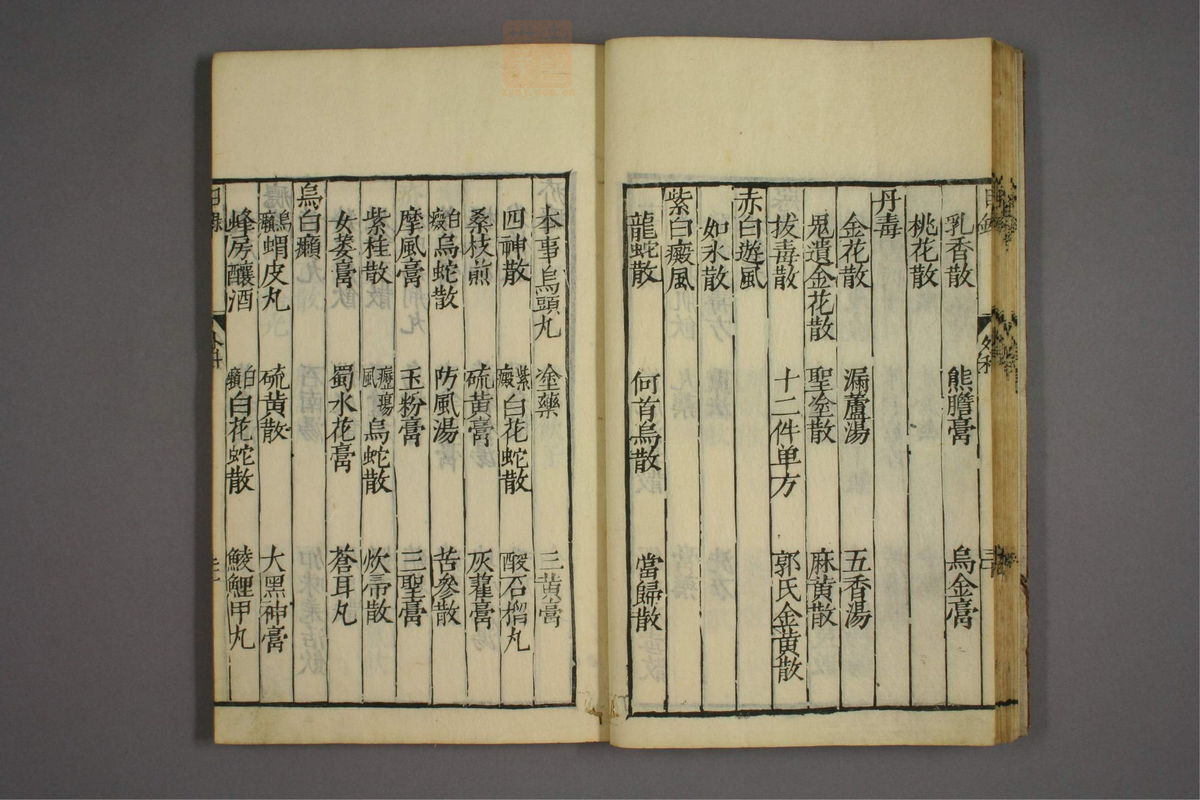 乳香散 熊膽膏 烏金膏
桃花散
丹毒
金花散 漏蘆湯 五香湯
鬼遺金花散 聖塗散 麻黄散
拔毒散 十二件单方 郭氏金黄散
赤白遊風
如氷散
紫白癜風
龍蛇散 何首烏散 當歸散
本事烏頭丸 塗藥 三黄膏
四神散 紫癜白花蛇散 酸石榴丸
桑枝煎 硫黄膏 灰藋膏
白癜烏蛇散 防風湯 苦參散
摩風膏 玉粉膏 三聖膏
紫桂散 癧瘍風烏蛇散 炊帚散
女萎膏 蜀水花膏 蒼耳丸
烏白癩
烏癩蝟皮丸 硫黄散 大黑神膏
蜂房釀酒 白癩白花蛇散 鯪鯉甲丸
目録 外科